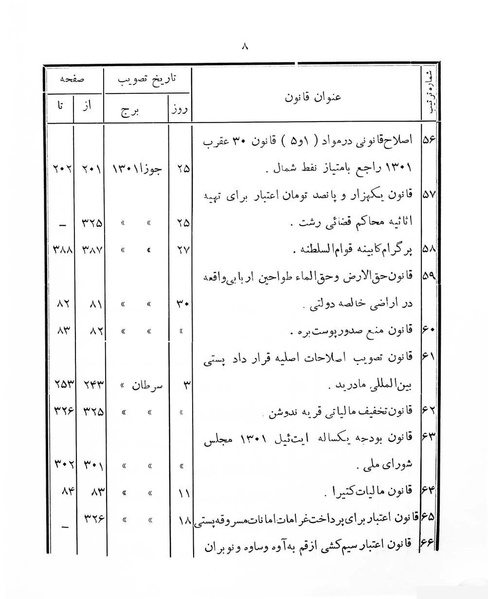 ۸
شماره ترتیب عنوان قانون تاریخ تصویب صفحه
روز برج از تا
۵۶ اصلاح قانونی درمواد ( ۱و۵ ) قانون ۳۰ عقرب
۱۳۰۱ راجع بامتیاز نفط شمال . ۲۵ جوزا ۱۳۰۱ ۲۰۱ ۲۰۲
۵۷ قانون یکهزار و پانصد تومان اعتبار برای تهیه
اثاثیه محاکم قضائی رشت . ۲۵ » » ۳۲۵ _
۵۸ پرگرام کابینه قوام السلطنه . ۲۷ » » ۳۸۷ ۳۸۸
۵۹ قانون حق الارض وحق الماء طواحین اربابی واقعه
در اراضی خالصه دولتی . ۳۰ » » ۸۱ ۸۲
۶۰ قانون منع صدور پوست بره . » » » ۸۲ ۸۳
۶۱ قانون تصویب اصلاحات اصلیه قرار داد پستی
بین المللی مادرید . ۳ سرطان » ۲۴۳ ۲۵۳
۶۲ قانون تخفیف مالیاتی قریه ندوشن . » » » ۳۲۵ ۳۲۶
۶۳ قانون بودجه یکساله ایت ئیل ۱۳۰۱ مجلس
شورای ملی . » » » ۳۰۱ ۳۰۲
۶۴ قانون مالیات کتیرا . ۱۱ » » ۸۳ ۸۴
۶۵ قانون اعتبار برای پرداخت غرامات امانات مسروقه پستی ۱۸ » » ۳۲۶ _
۶۶ قانون اعتبار سیم کشی ازقم به آوه وساوه و نوبران